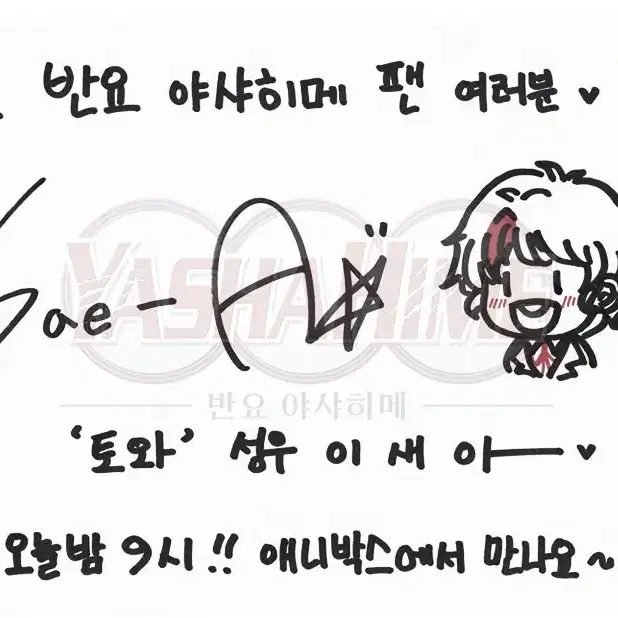 반요 야샤히메 팬 여러분♥
Sae-A
YASHAHIME
반요 야샤히메
'토와' 성우 이 새 아ー♥
오늘밤 9시!! 애니박스에서 만나요~